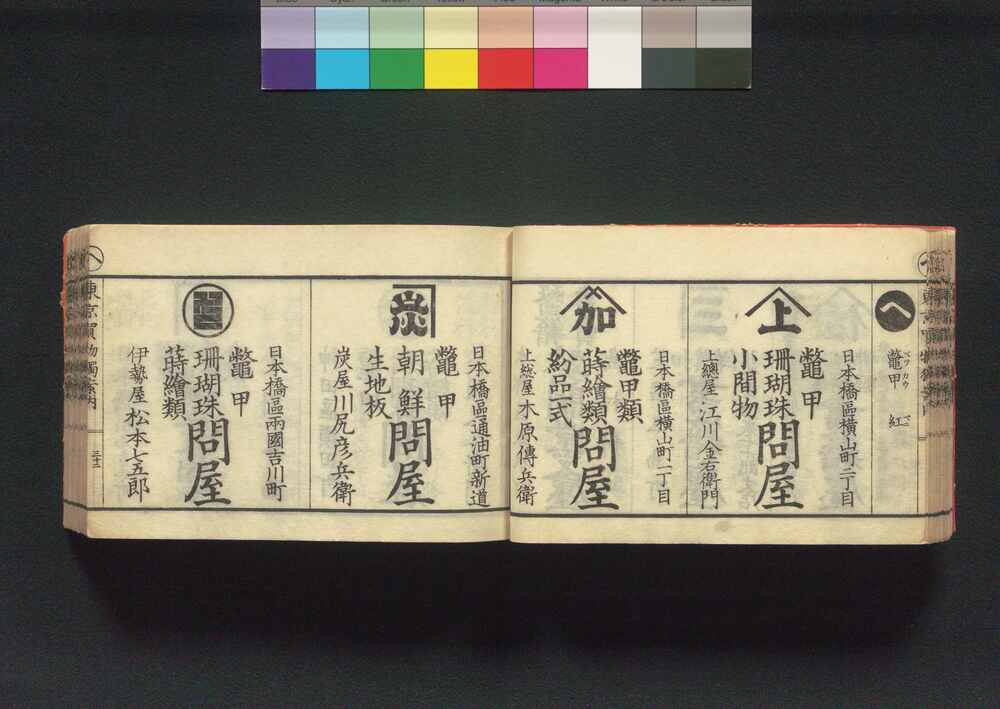 へ
鼈甲 ベツカウ
紅 ベニ
上
日本橋區横山町二丁目
鼈甲
珊瑚珠
小間物
問屋
上總屋 江川金右衛門
加
日本橋區横山町一丁目
鼈甲類
蒔繪類
紛品一式
問屋
上総屋 木原傳兵衛
炭
日本橋區通油町新道
鼈甲
朝鮮
生地板
問屋
炭屋 川尻彦兵衛
日本橋區兩國吉川町
鼈甲
珊瑚珠
蒔繪類
問屋
伊勢屋 松本七五郎
へ
東京買物獨案内